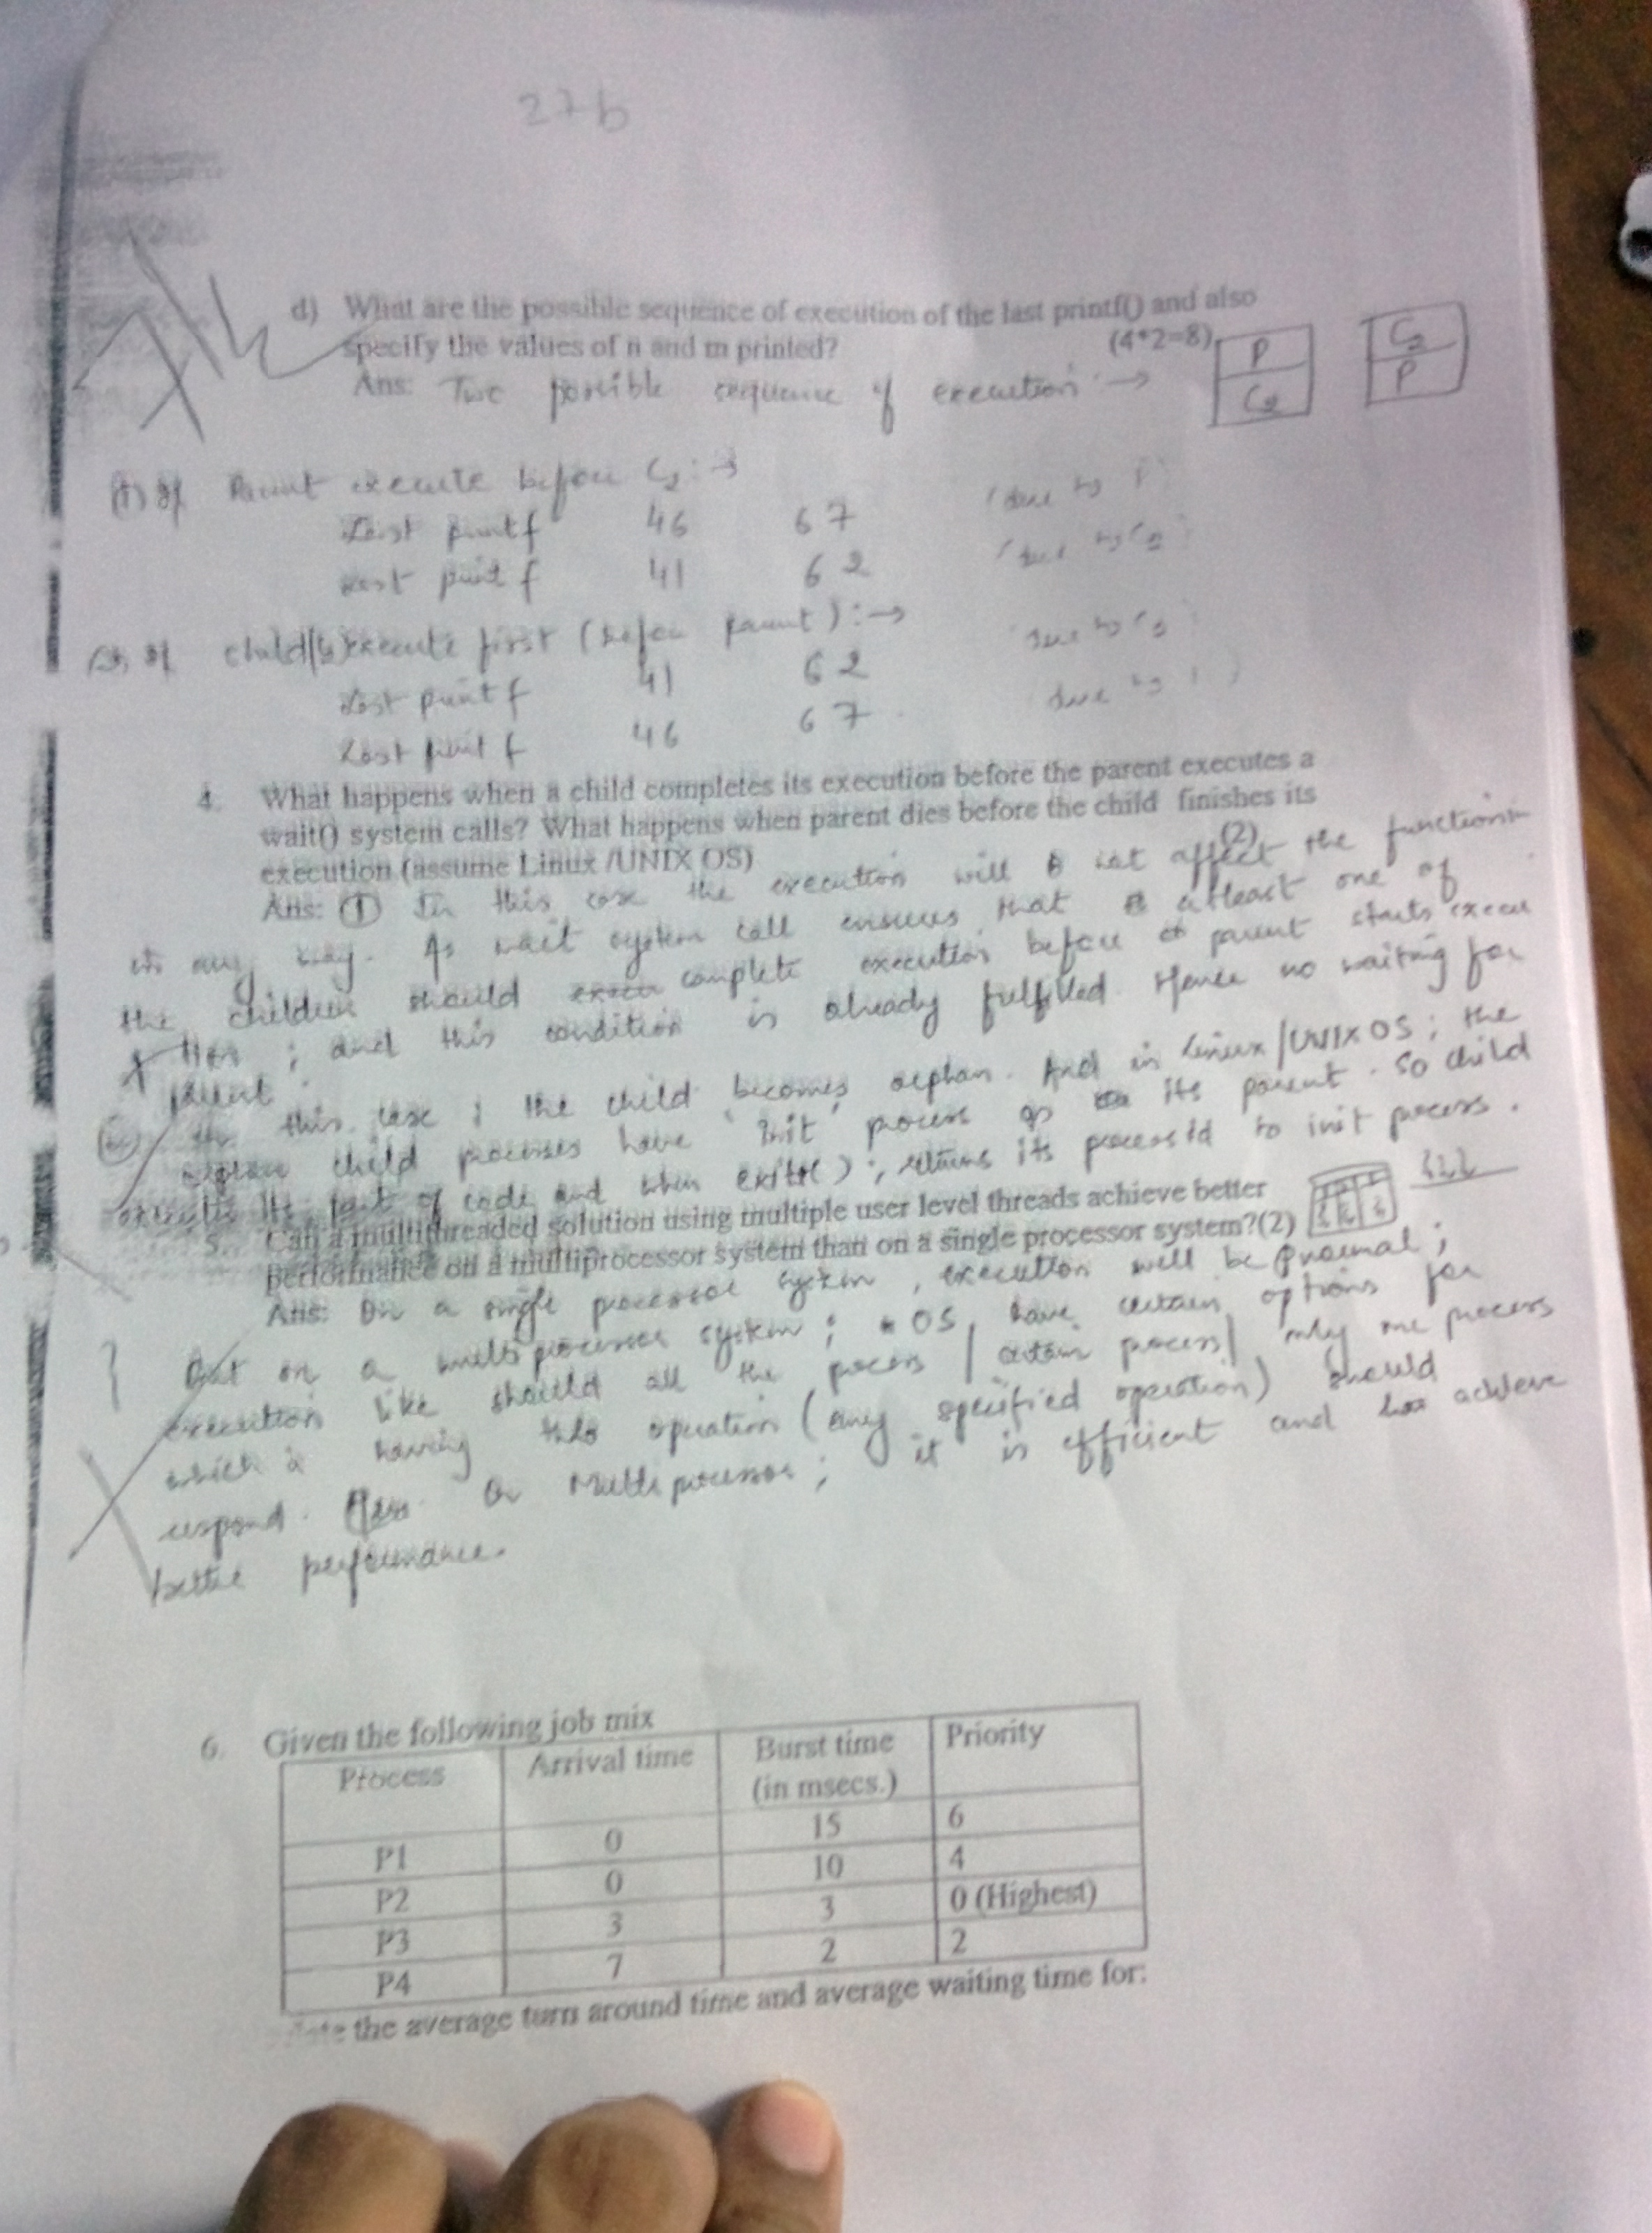 27b
d) What are the possible sequence of execution of the last printf() and also
specify the values of n and m printed?
(4*2=8)
Ans: Two possible sequence of execution :→
P
C2
C2
P
(1) If Parent execute before C2 :→
Last printf 46 67 (due to P)
Last printf 41 62 (due to C2)
If child(C2) execute first (before parent) :→
Last printf 41 62 due to C2
Last printf 46 67 due to P)
4. What happens when a child completes its execution before the parent executes a
wait() system calls? What happens when parent dies before the child finishes its
execution (assume Linux /UNIX OS) (2)
Ans: ① In this case the execution will not affect the function
in any way. As wait system call ensures that atleast one of
the children should complete execution before parent starts execu
; and this condition is already fulfilled. Hence no waiting for
parent.
In this case ; the child becomes orphan. And in Linux/UNIX OS ; the
orphan child processes have 'Init' process as its parent. So child
executes its part of code and when exits( ) ; returns its process id to init process.
5. Can a multithreaded solution using multiple user level threads achieve better
performance on a multiprocessor system than on a single processor system?(2)
Ans: On a single processor system , execution will be normal ;
But on a multi processor system ; OS have certain options for
execution like should all the process / certain process / only one process
which is having this operation (any specified operation) should
respond. On Multi processor ; it is efficient and achieve
better performance.
6. Given the following job mix
Process Arrival time Burst time (in msecs.) Priority
P1 0 15 6
P2 0 10 4
P3 3 3 0 (Highest)
P4 7 2 2
the average turn around time and average waiting time for: